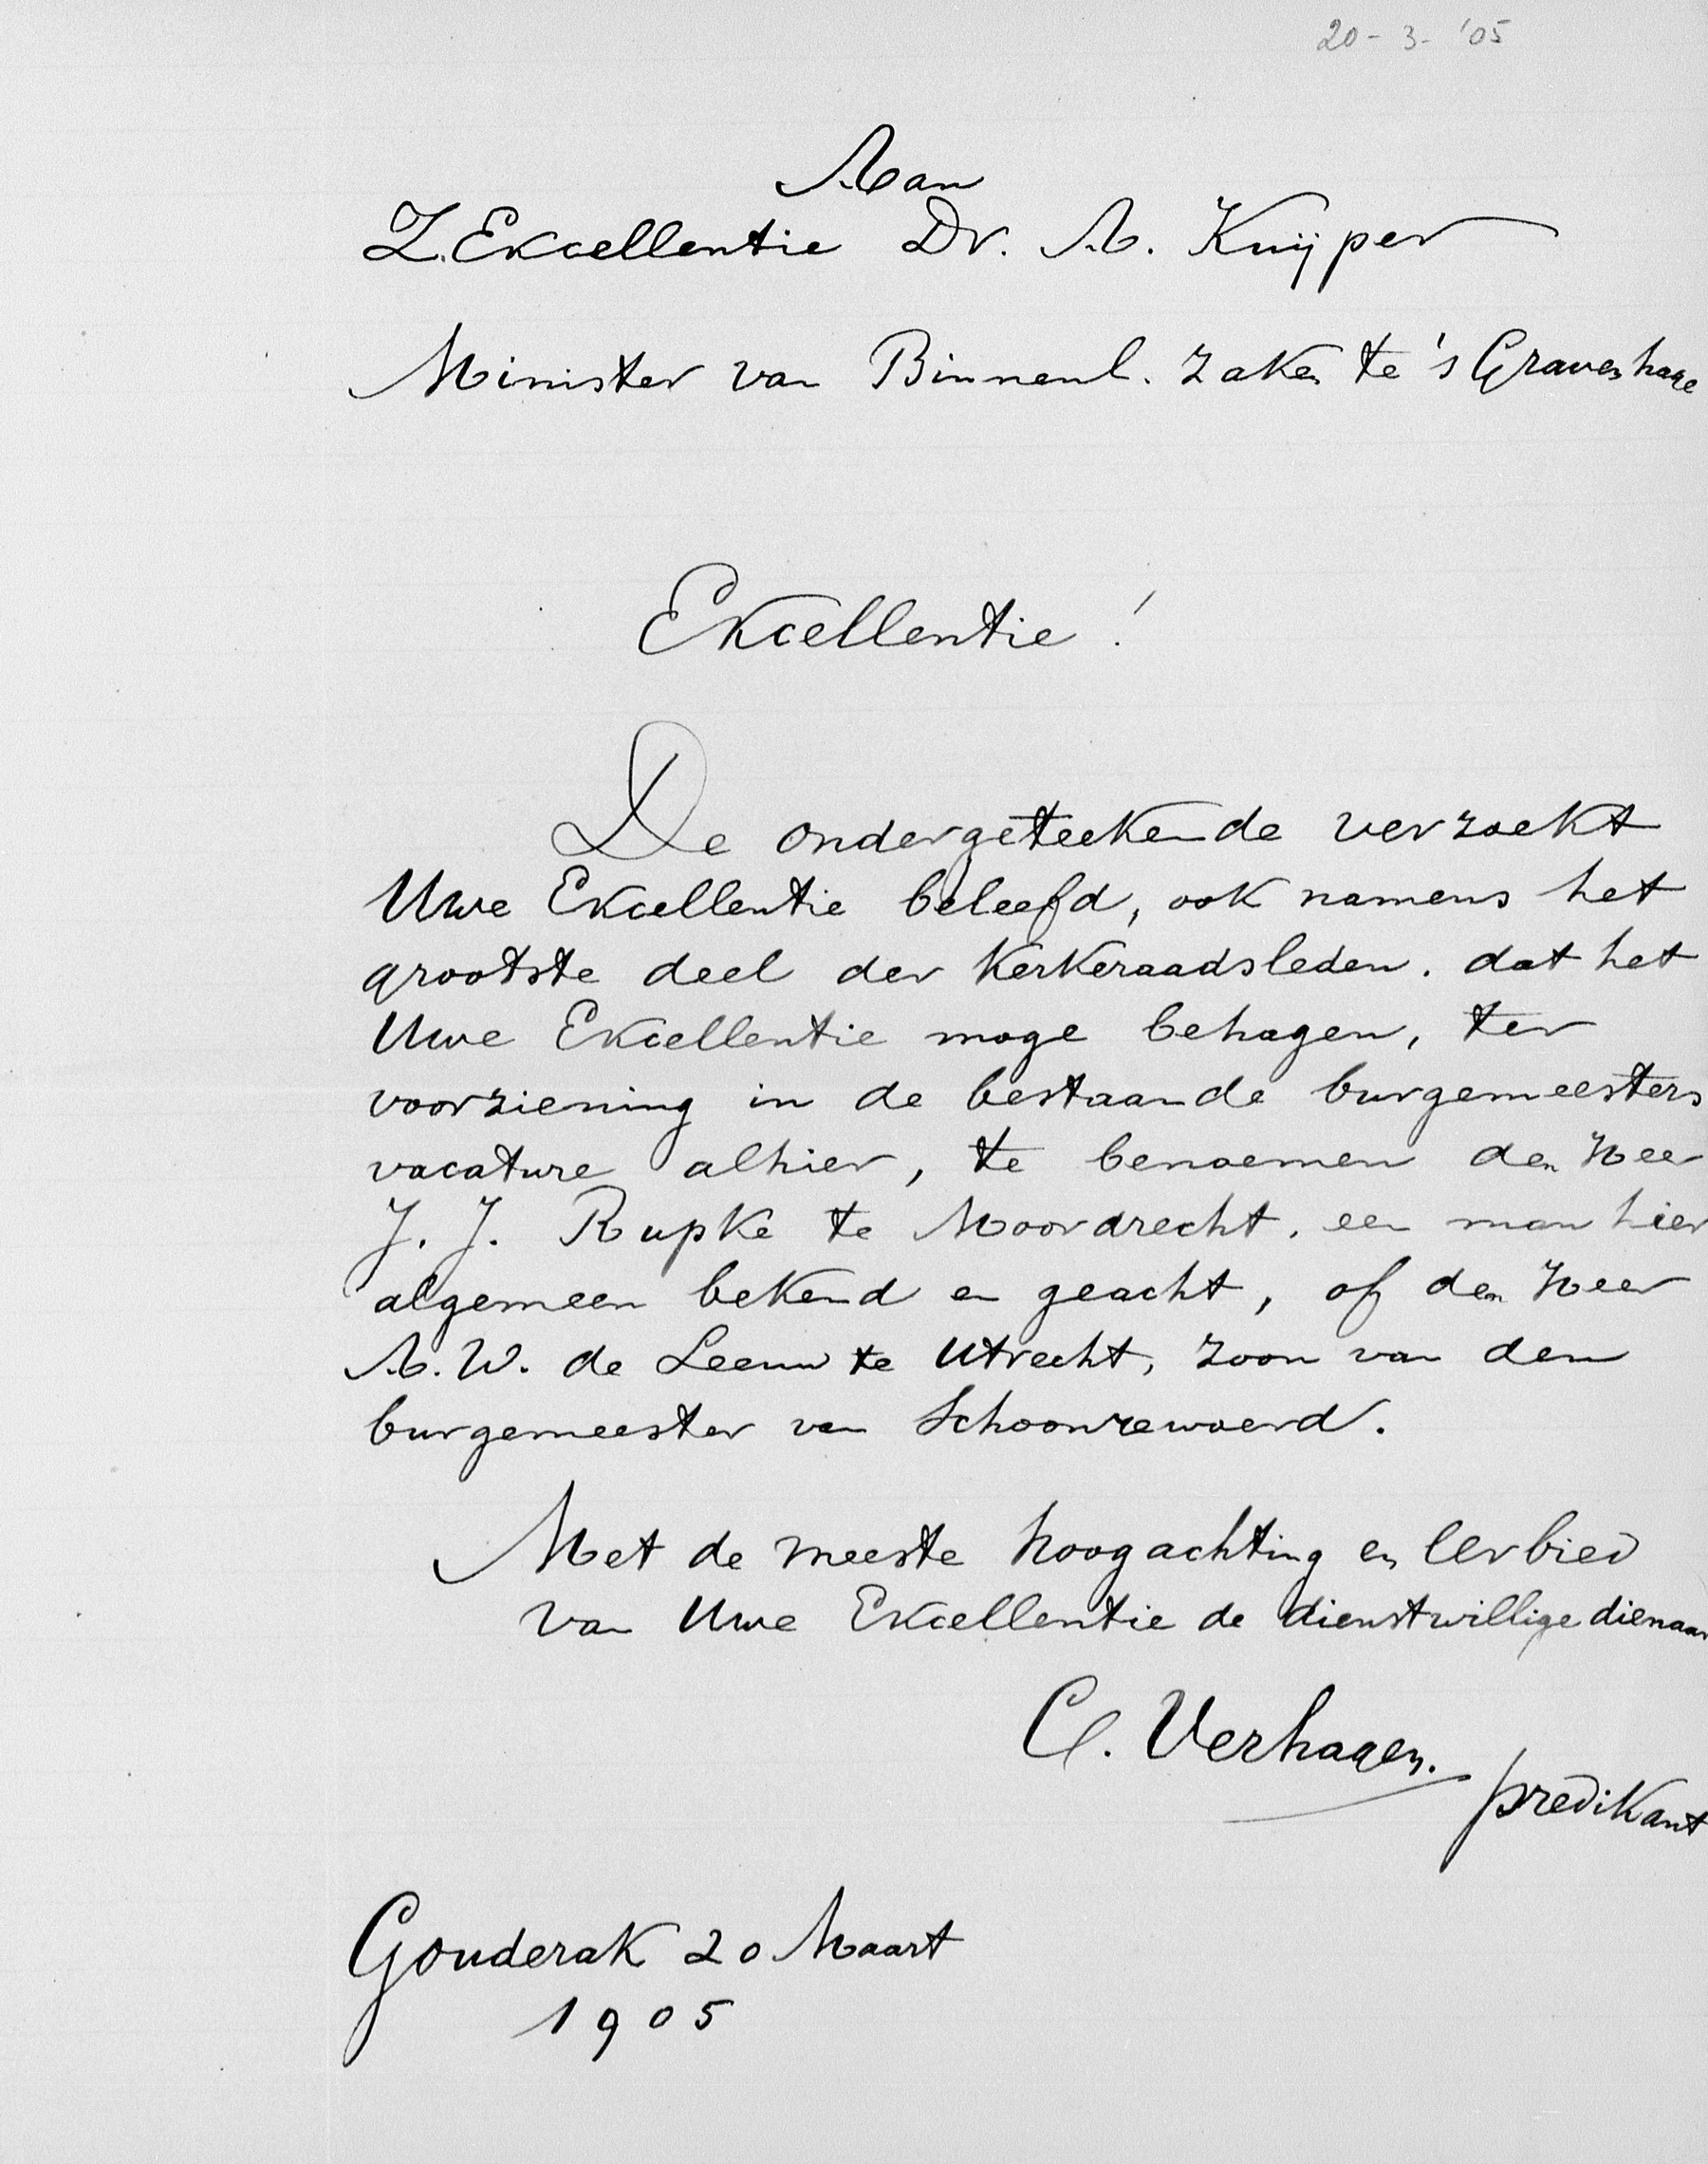 20-3-'05
Aan
Z. Excellentie Dr. A. Kuijper
Minister van Binnenl. Zaken te 's Gravenhage
Excellentie!
De ondergeteekende verzoekt
Uwe Excellentie beleefd, ook namens het
grootste deel der Kerkeraadsleden. dat het
Uwe Excellentie moge behagen, ter
voorziening in de bestaande burgemeesters
vacature alhier, te benoemen den Heer
J. J. Rupke te Moordrecht, een man hier
algemeen bekend en geacht, of den Heer
A. W. de Leeuw te Utrecht, zoon van den
burgemeester van Schoonrewoerd.
Met de meeste hoogachting en eerbied
van Uwe Excellentie de dienstwillige dienaar
C. Verhagen.
predikant
Gouderak 20 Maart
1905